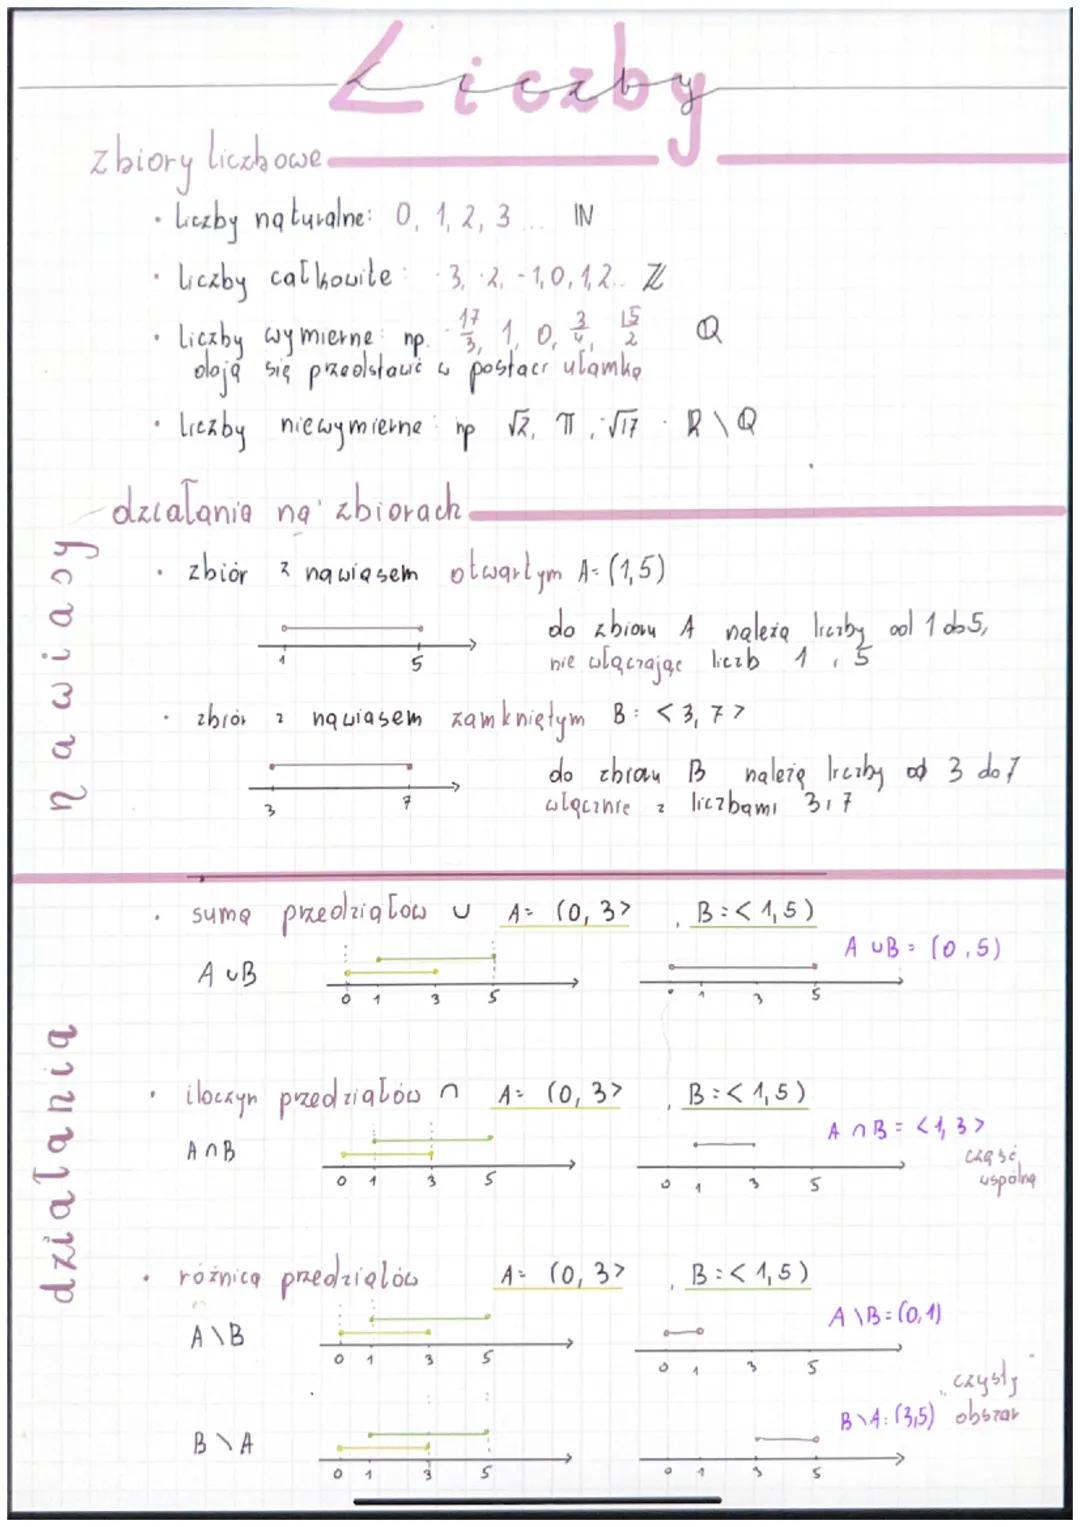 Liczby
zbiory liczbowe
· Liczby naturalne: 0, 1, 2, 3 ... ℕ
· liczby całkowite: -3, -2, -1, 0, 1, 2.. ℤ
· liczby wymierne: np. -17/3, 1, 0, 3/4, 15/2 ℚ
dają się przedstawić w postaci ułamka
· liczby niewymierne: np √2, π, -√17 · ℝ \ ℚ
nawiasy
działania na zbiorach
· zbiór z nawiasem otwartym A= (1,5)
do zbioru A należą liczby od 1 do 5,
nie włączając liczb 1 i 5
1 5
· zbiór z nawiasem zamkniętym B: <3, 7>
do zbioru B należą liczby od 3 do 7
włącznie z liczbami 3 i 7
3 7
działania
· suma przedziałów ∪ A= (0, 3> , B:< 1,5)
A ∪ B = (0,5)
A ∪ B
0 1 3 5
1 3 5
· iloczyn przedziałów ∩ A= (0, 3> , B:< 1,5)
A ∩ B = <1, 3>
A ∩ B
część
wspólna
0 1 3 5
0 1 3 5
· różnica przedziałów A= (0, 3> , B:< 1,5)
A \ B = (0,1)
A \ B
0 1 3 5
0 1 3 5
czysty
B \ A: (3,5) obszar
B \ A
0 1 3 5
0 1 3 5